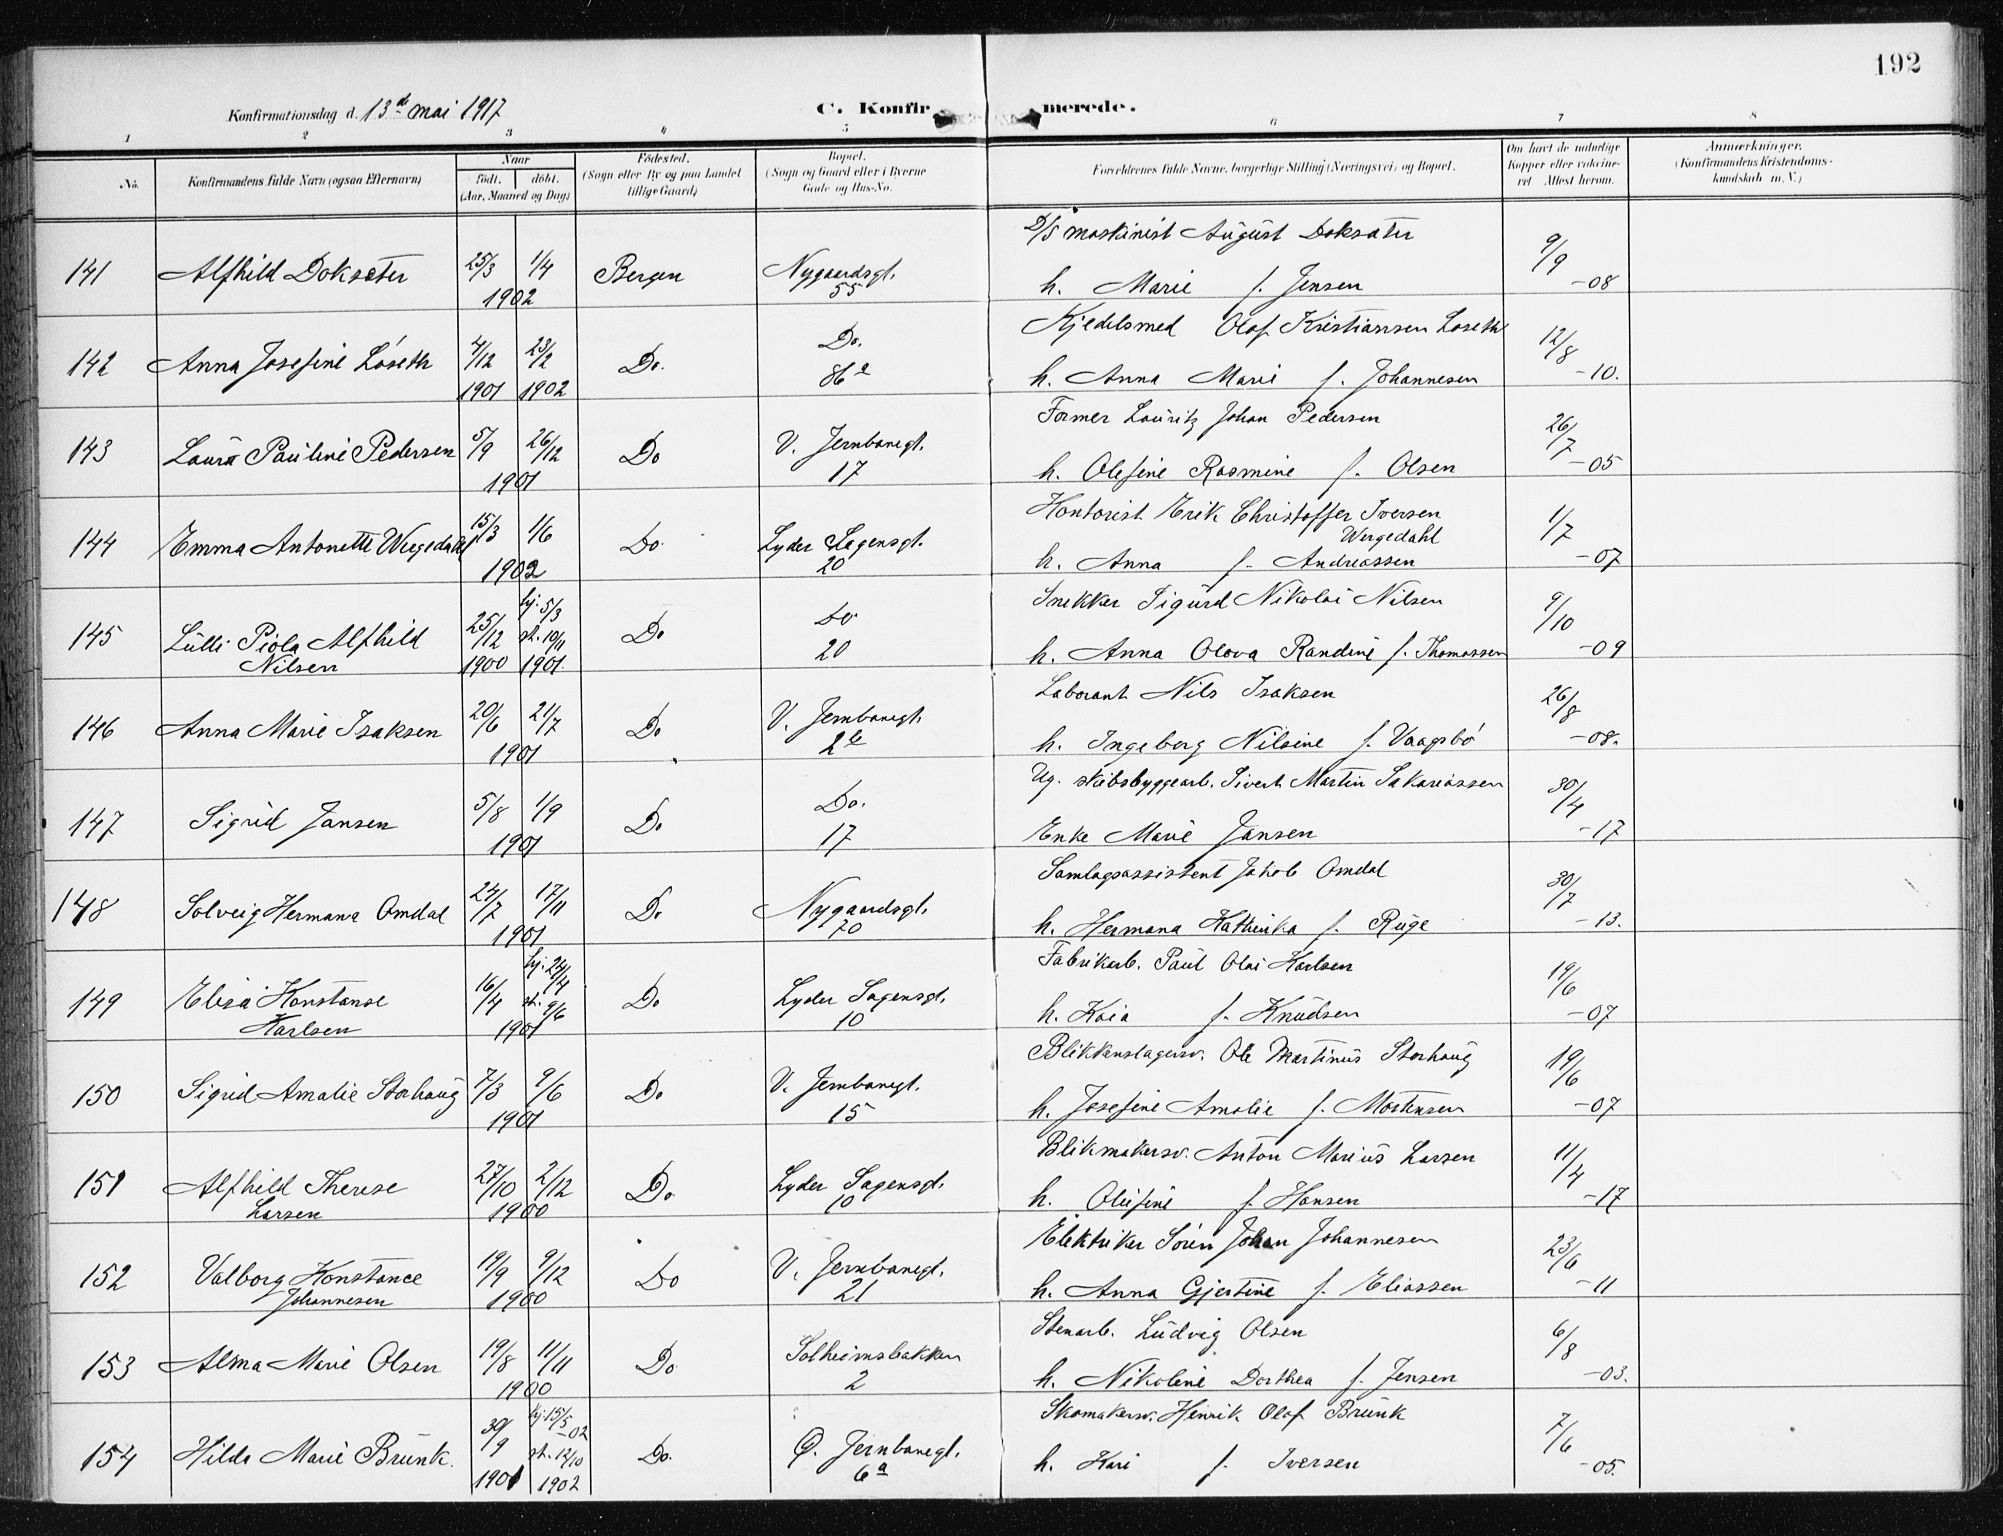 192
Konfirmationsdag d. 13de mai 1917
C. Konfirmerede.
1 2 3 4 5 6 7 8
No. Konfirmandens fulde Navn (ogsaa Efternavn) Naar født. døbt. (Aar, Maaned og Dag) Fødested. (Sogn eller By og paa Landet tillige Gaard) Bopæl. (Sogn og Gaard eller i Byerne Gade og Hus-No. Forældrenes fulde Navne, borgerlige Stilling (Næringsvei) og Bopæl. Om havt de naturlige Kopper eller vakcineret. Attest herom. Anmærkninger. (Konfirmandens Kristendomskundskab m. V.)
141 Alfhild Doksæter 25/3 1/4 1902 Bergen Nygaardsgt. 55 D/S maskinist August Doksæter
h. Marie f. Jensen 9/9 -08
142 Anna Josefine Løseth 4/12 1901 23/2 1902 Do. Do. 86a Kjedelsmed Olaf Kristiansen Løseth
h. Anna Marie f. Johannesen 12/8 -10.
143 Laura Pauline Pedersen 5/9 26/12 1901 Do V. Jernbanegt. 17 Former Lauritz Johan Pedersen
h. Olefine Rasmine f. Olsen 26/7 -05
144 Emma Antonette Wergedahl 15/3 1/6 1902 Do. Lyder Sagensgt. 20 Kontorist Erik Christoffer Iversen Wergedahl
h. Anna f. Andreassen 1/7 -07
145 Lulli Piola Alfhild Nilsen 25/12 1900 hj. 5/3 st. 10/11 1901. Do Do 20 Snekker Sigurd Nikolai Nilsen
h. Anna Olova Randine f. Thomassen 9/10 -09
146 Anna Marie Isaksen 20/6 21/7 1901 Do V. Jernbanegt. 2b Laborant Nils Isaksen
h. Ingeborg Nilsine f. Vaagsbø 26/8 -08.
147 Sigrid Jansen 5/8 1/9 1901 Do Do. 17 Ug. skibsbyggearb. Sivert Martin Sakariassen
Enke Marie Jansen 30/4 -17
148 Solveig Hermana Omdal 24/7 17/11 1901 Do Nygaardsgt. 70 Samlagsassistent Jakob Omdal
h. Hermana Kathinka f. Ruge 30/7 -13.
149 Elisa Konstanse Karlsen 16/4 hj. 24/4 st. 9/6 1901 Do Lyder Sagensgt. 10 Fabrikarb. Paul Olai Karlsen
h. Kaia f. Knudsen 19/6 -07
150 Sigrid Amalie Storhaug 7/3 9/6 1901 Do V. Jernbanegt. 15 Blikkenslagersv. Ole Martinus Storhaug
h. Josefine Amalie f. Mortensen 19/6 -07
151 Alfhild Therese Larsen 27/10 2/12 1900 Do Lyder Sagensgt. 10 Blikmakersv. Anton Marius Larsen
h. Olufine f. Hansen 11/4 -17
152 Valborg Konstance Johannesen 19/9 9/12 1900 Do V. Jernbanegt. 21 Elektriker Søren Johan Johannesen
h. Anna Gjertine f. Eliassen 23/6 -11
153 Alma Marie Olsen 19/8 11/11 1900 Do Solheimsbakken 2 Stenarb. Ludvig Olsen
h. Nikoline Dorthea f. Jensen 6/8 -03.
154 Hilda Marie Brunk. 30/9 1901 hj. 15/5 -02 st. 12/10 1902 Do. Ø. Jernbanegt. 6a Skomakersv. Henrik Olaf Brunk
h. Kari f. Iversen 7/6 -05.